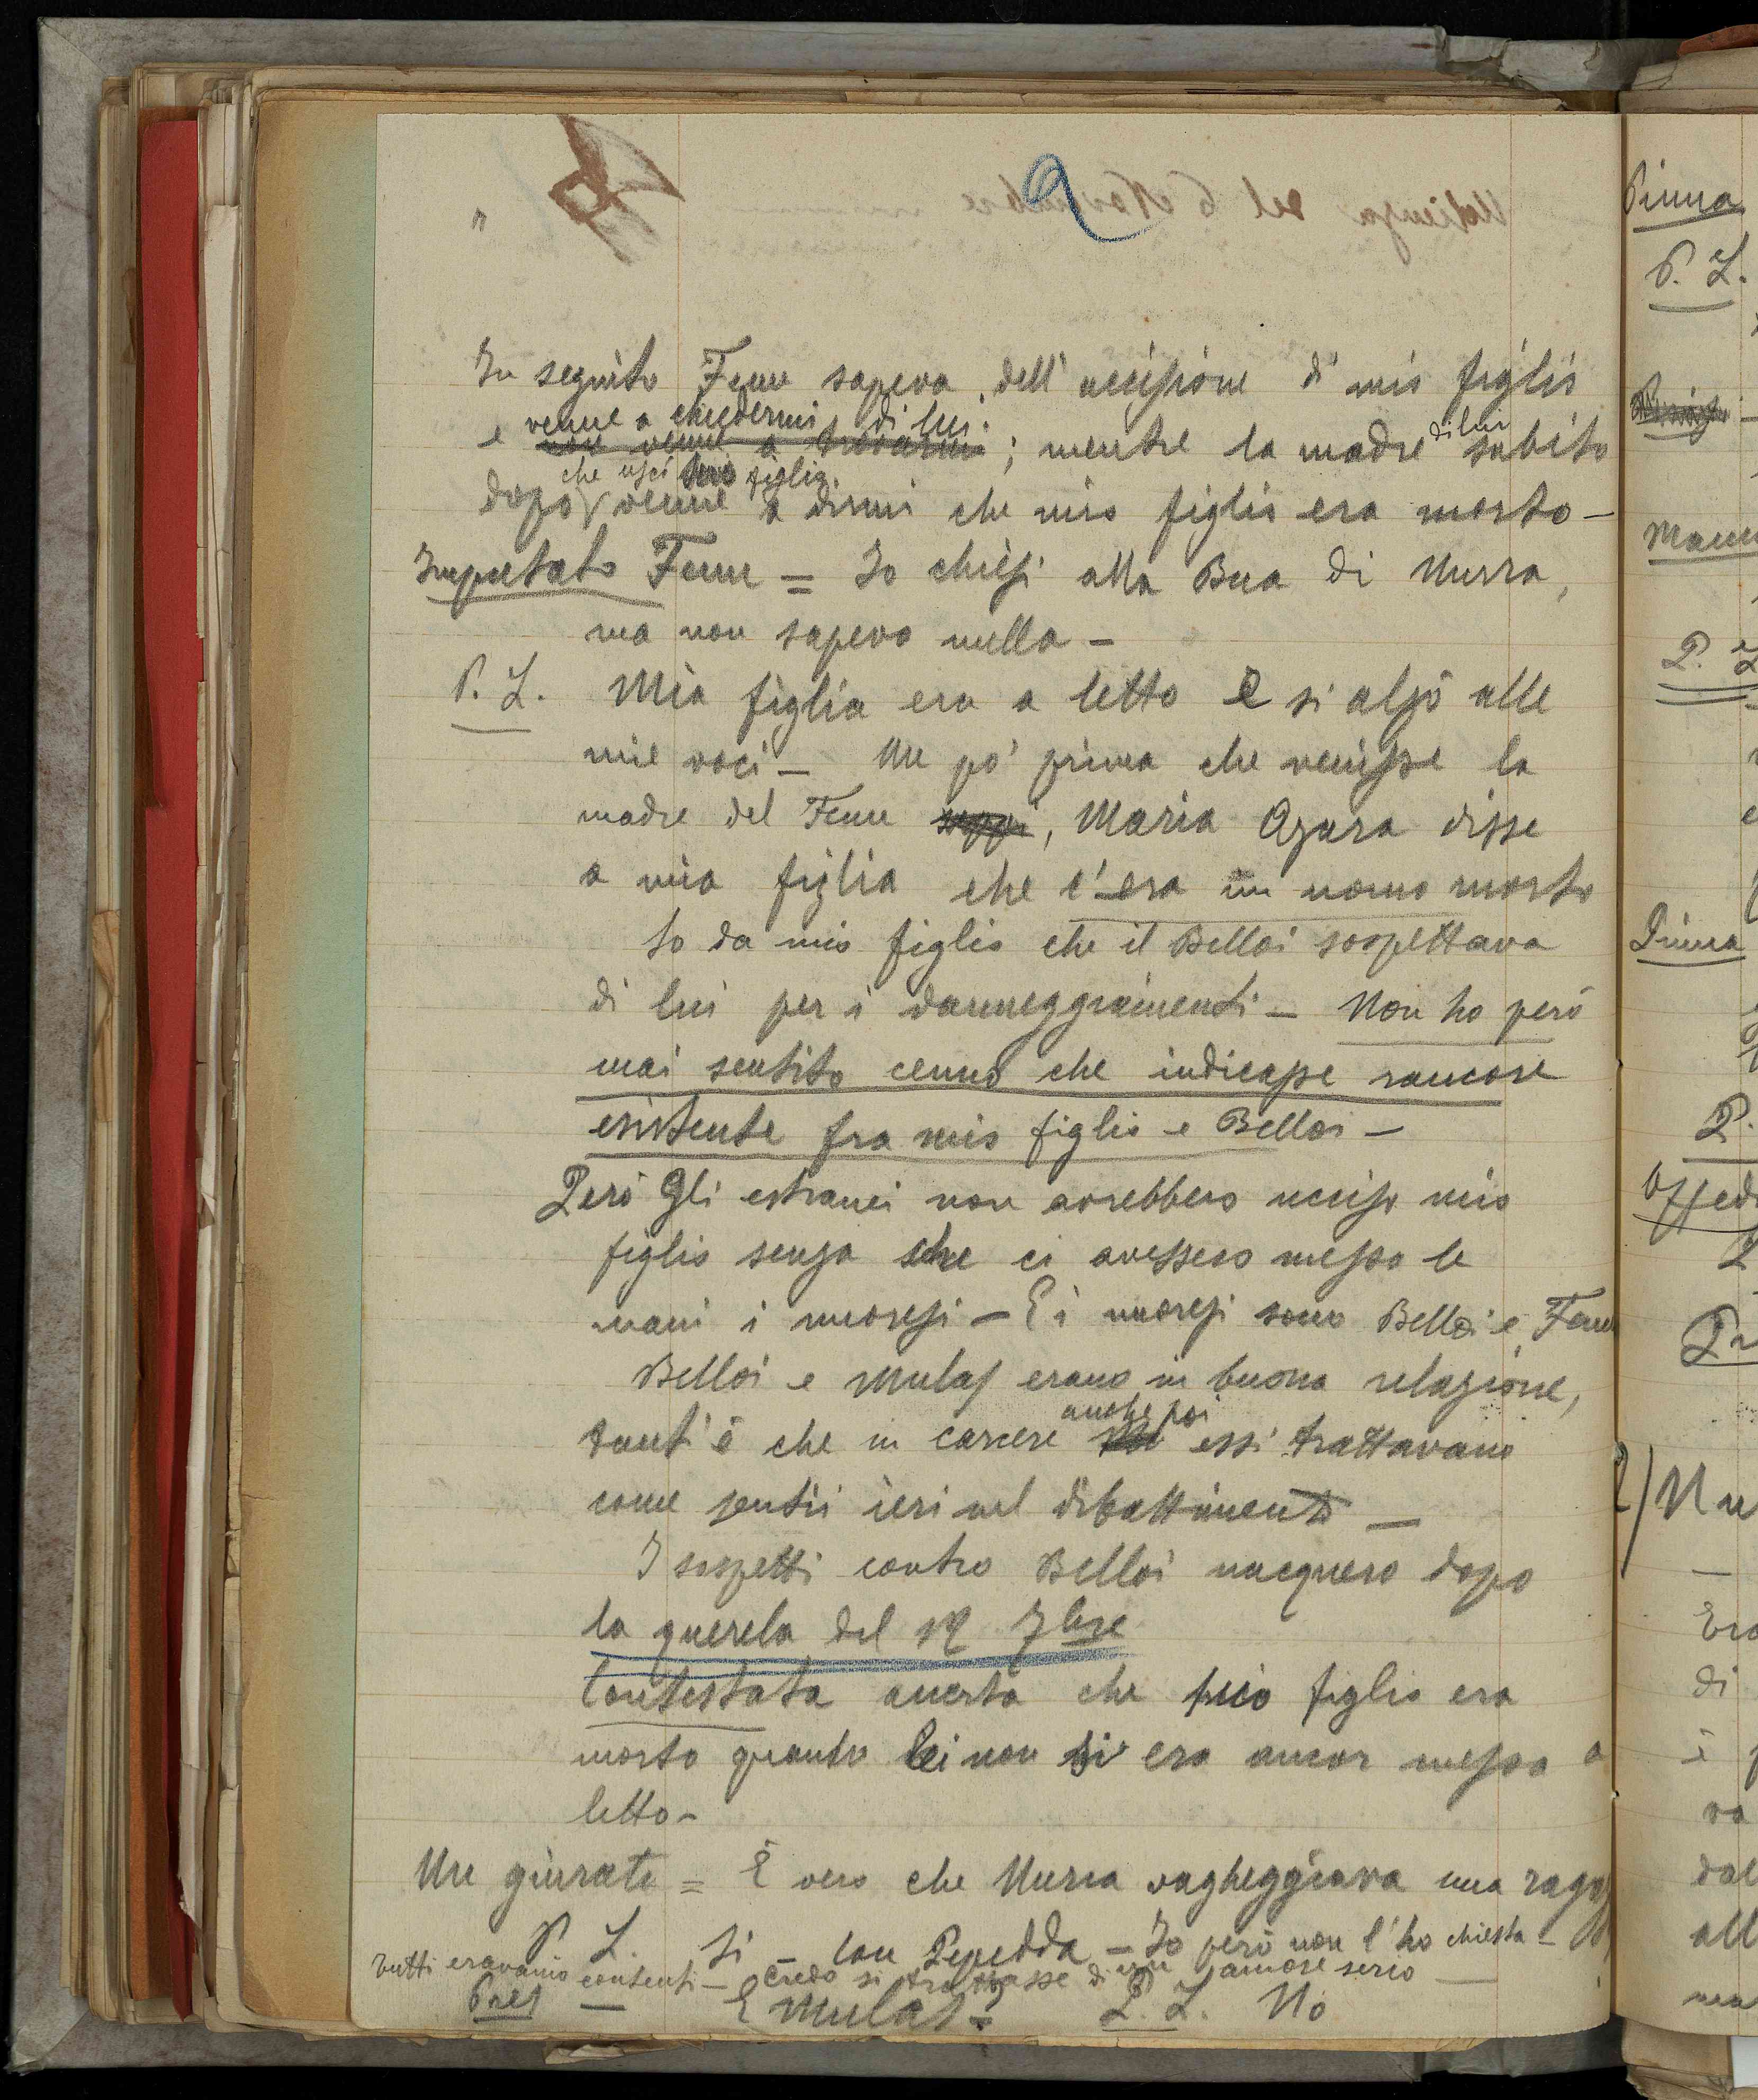 9
In seguito Fenu sapeva dell'uccisione di mio figlio
e venne a chiedermi di lui
non venne a trovarmi ; mentre la madre di lui subito
dopo che uscì suo figlio venne a dirmi che mio figlio era morto -
Imputato Fenu = Io chiesi alla Bua di Nurra,
ma non sapevo nulla -
P. L. Mia figlia era a letto e si alzò alle
mie voci - Un po' prima che venisse la
madre del Fenu seppi, Maria Azara disse
a mia figlia che c'era un uomo morto
So da mio figlio che il Belloi sospettava
di lui per i danneggiamenti - Non ho però
mai sentito cenno che indicasse rancore
esistente fra mio figlio e Belloi -
Però gli estranei non avrebbero ucciso mio
figlio senza che ci avessero messo le
mani i nuoresi - E i nuoresi sono Belloi e Fenu
Belloi e Mulas erano in buona relazione,
tant'è che in carcere anche poi essi trattavano
come sentii ieri nel dibattimento -
I sospetti contro Belloi nacquero dopo
la querela del 7bre
Contestata avverta che suo figlio era
morto quando lei non si era ancor messa a
letto -
Un giurato = È vero che Nurra vagheggiava una ragaz
P. L. Si - con Pepedda - Io però non l'ho chiesta -
tutti eravamo contenti - credo si trattasse di un amore serio -
Pres - E Mulas? P. L. No
Pinna
P. L.
P.
Pinna
P.
2)
di
è
va
dal
all